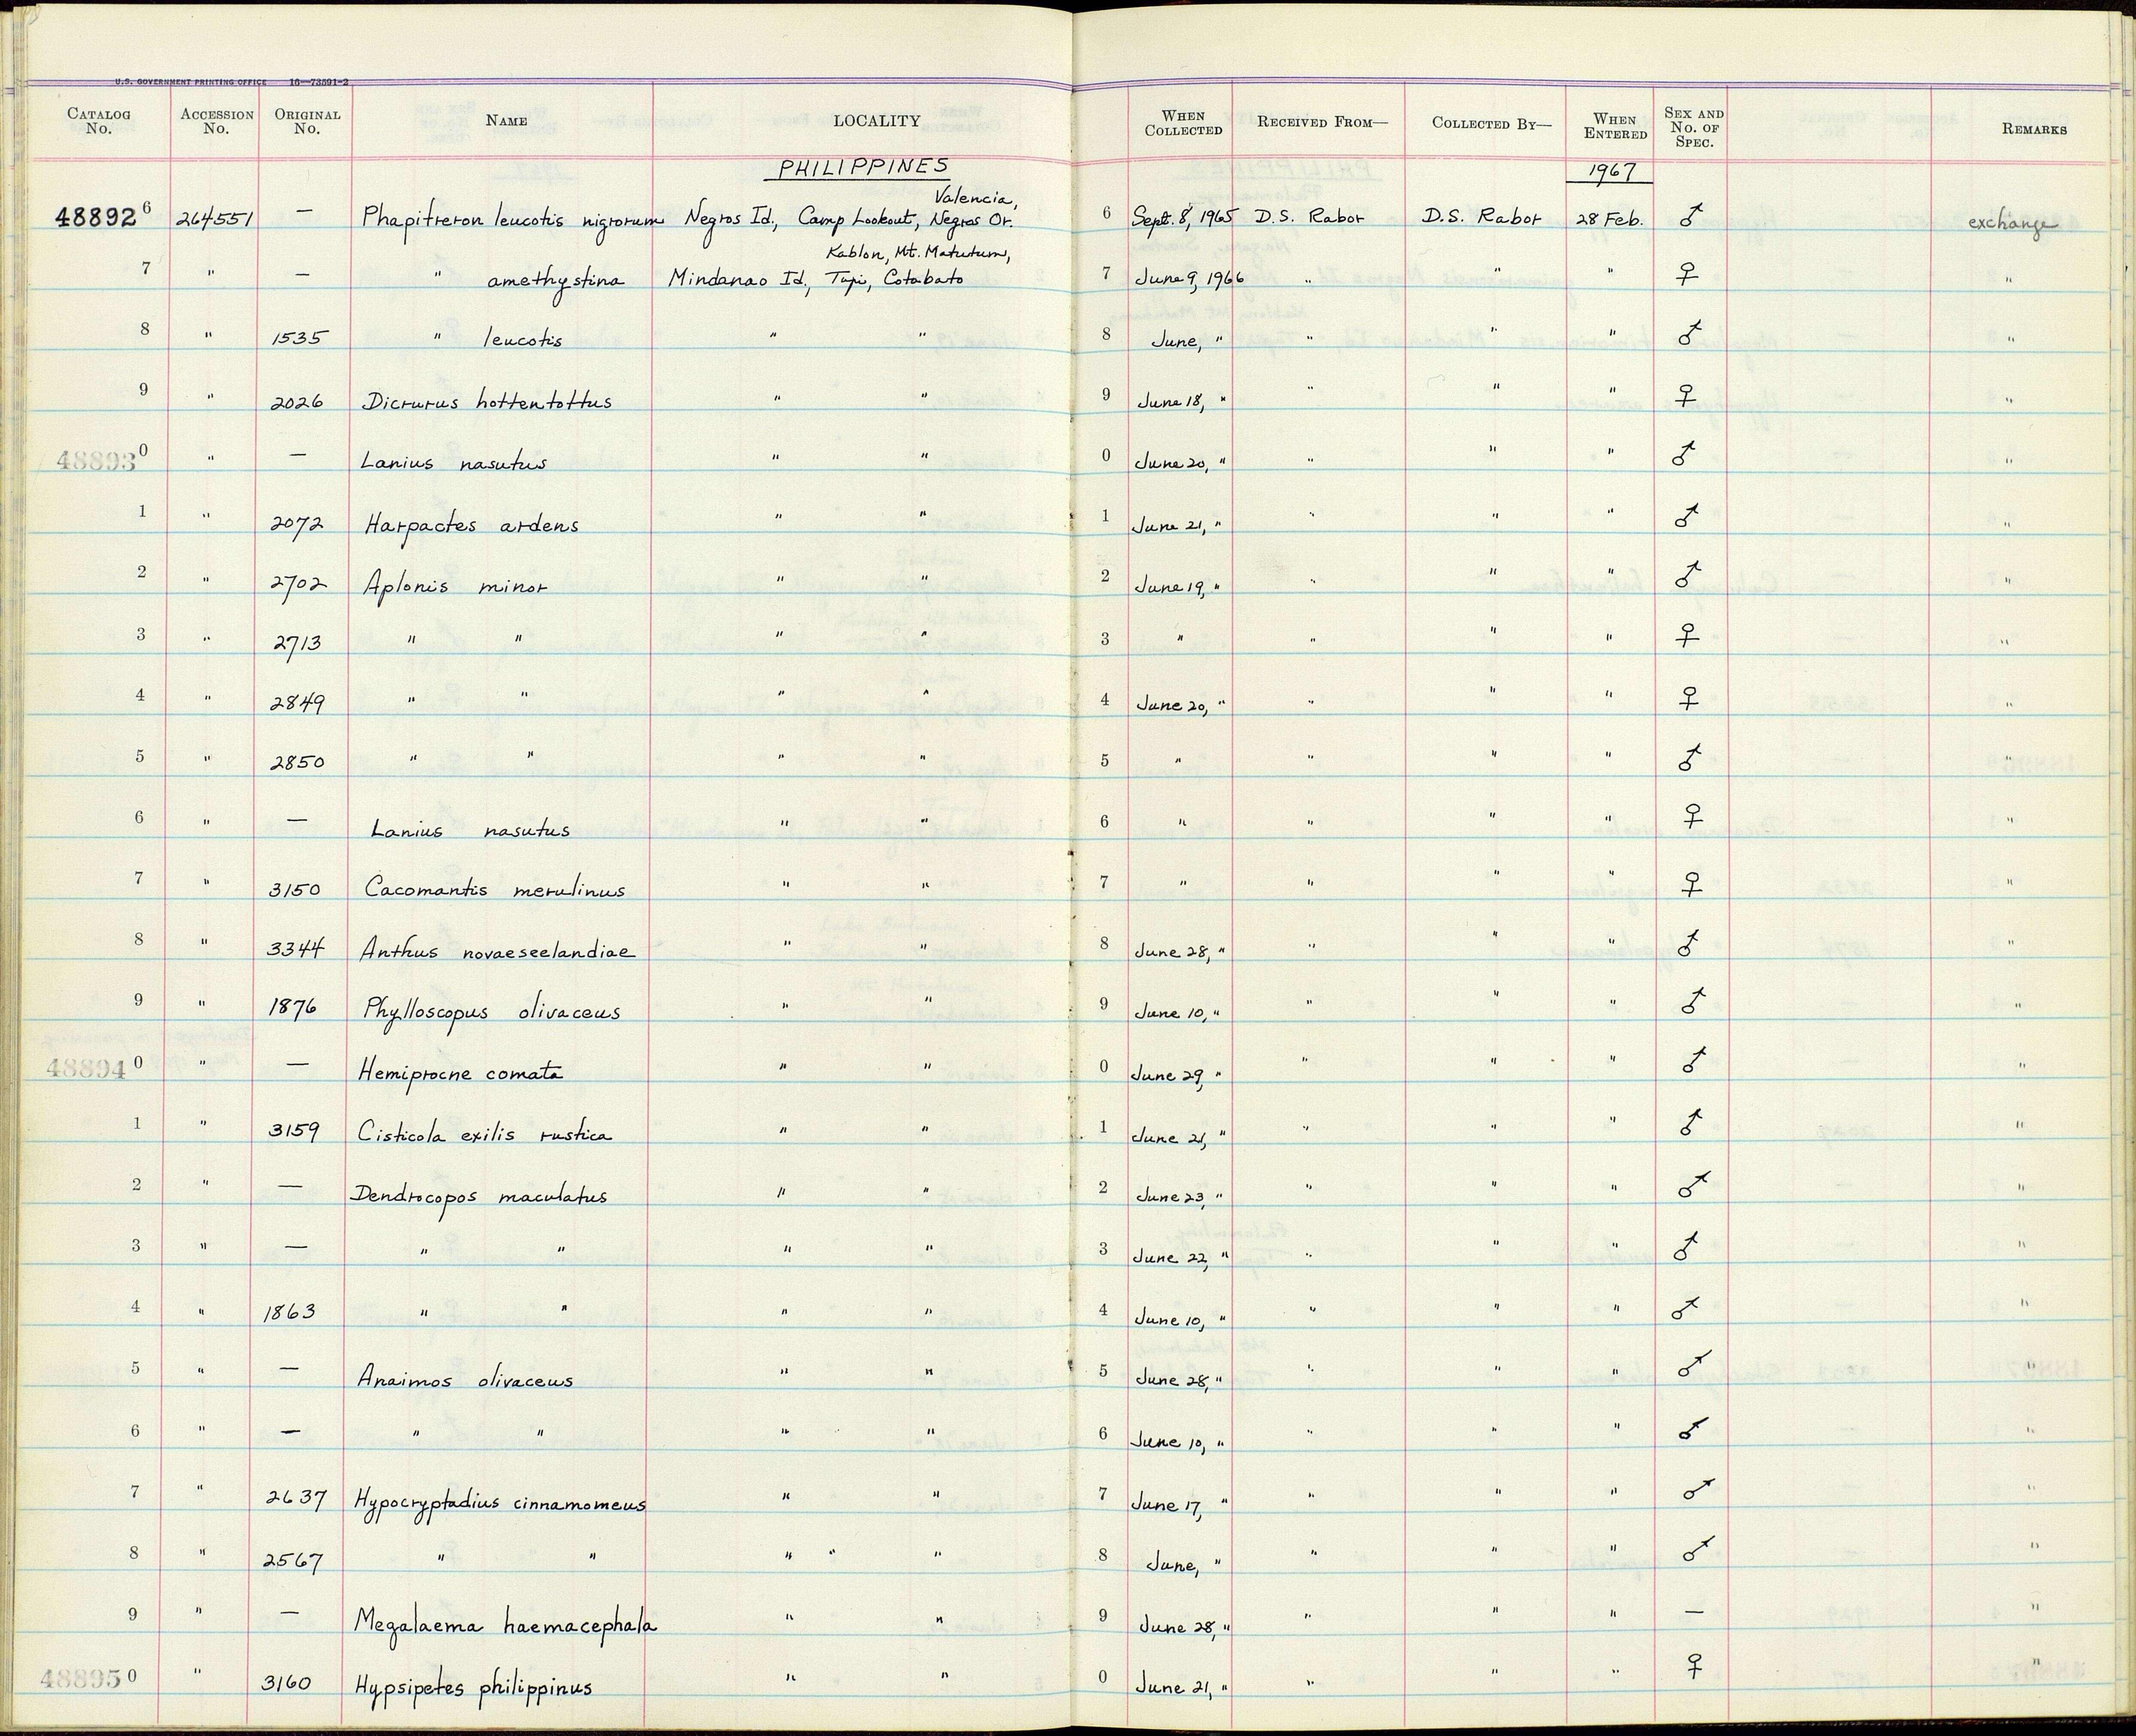 U.S. GOVERNMENT PRINTING OFFICE 16—73591-2
CATALOG No. ACCESSION No. ORIGINAL No. NAME LOCALITY WHEN COLLECTED RECEIVED FROM— COLLECTED BY— WHEN ENTERED SEX AND No. OF SPEC. REMARKS
PHILIPPINES 1967
Valencia,
488926 264551 — Phapitreron leucotis nigrorum Negros Id., Camp Lookout, Negros Or. 6 Sept. 8, 1965 D.S. Rabor D.S. Rabor 28 Feb. ♂ exchange
Kablon, Mt. Matutum,
7 " — " amethystina Mindanao Id., Tupi, Cotabato 7 June 9, 1966 " " " ♀ "
8 " 1535 " leucotis " " 8 June, " " " " ♂ "
9 " 2026 Dicrurus hottentottus " " 9 June 18, " " " " ♀ "
488930 " — Lanius nasutus " " 0 June 20, " " " " ♂ "
1 " 2072 Harpactes ardens " " 1 June 21, " " " " ♂ "
2 " 2702 Aplonis minor " " 2 June 19, " " " " ♂ "
3 " 2713 " " " " 3 " " " " ♀ "
4 " 2849 " " " " 4 June 20, " " " " ♀ "
5 " 2850 " " " " 5 " " " " ♂ "
6 " — Lanius nasutus " " 6 " " " " ♀ "
7 " 3150 Cacomantis merulinus " " 7 " " " " ♀ "
8 " 3344 Anthus novaeseelandiae " " 8 June 28, " " " " ♂ "
9 " 1876 Phylloscopus olivaceus " " 9 June 10, " " " " ♂ "
488940 " — Hemiprocne comata " " 0 June 29, " " " " ♂ "
1 " 3159 Cisticola exilis rustica " " 1 June 21, " " " " ♂ "
2 " — Dendrocopos maculatus " " 2 June 23, " " " " ♂ "
3 " — " " " " 3 June 22, " " " " ♂ "
4 " 1863 " " " " 4 June 10, " " " " ♂ "
5 " — Anaimos olivaceus " " 5 June 28, " " " " ♂ "
6 " — " " " " 6 June 10, " " " " ♂ "
7 " 2637 Hypocryptadius cinnamomeus " " 7 June 17, " " " " ♂ "
8 " 2567 " " " " " 8 June, " " " " ♂ "
9 " — Megalaema haemacephala " " 9 June 28, " " " " — "
488950 " 3160 Hypsipetes philippinus " " 0 June 21, " " " " ♀ "